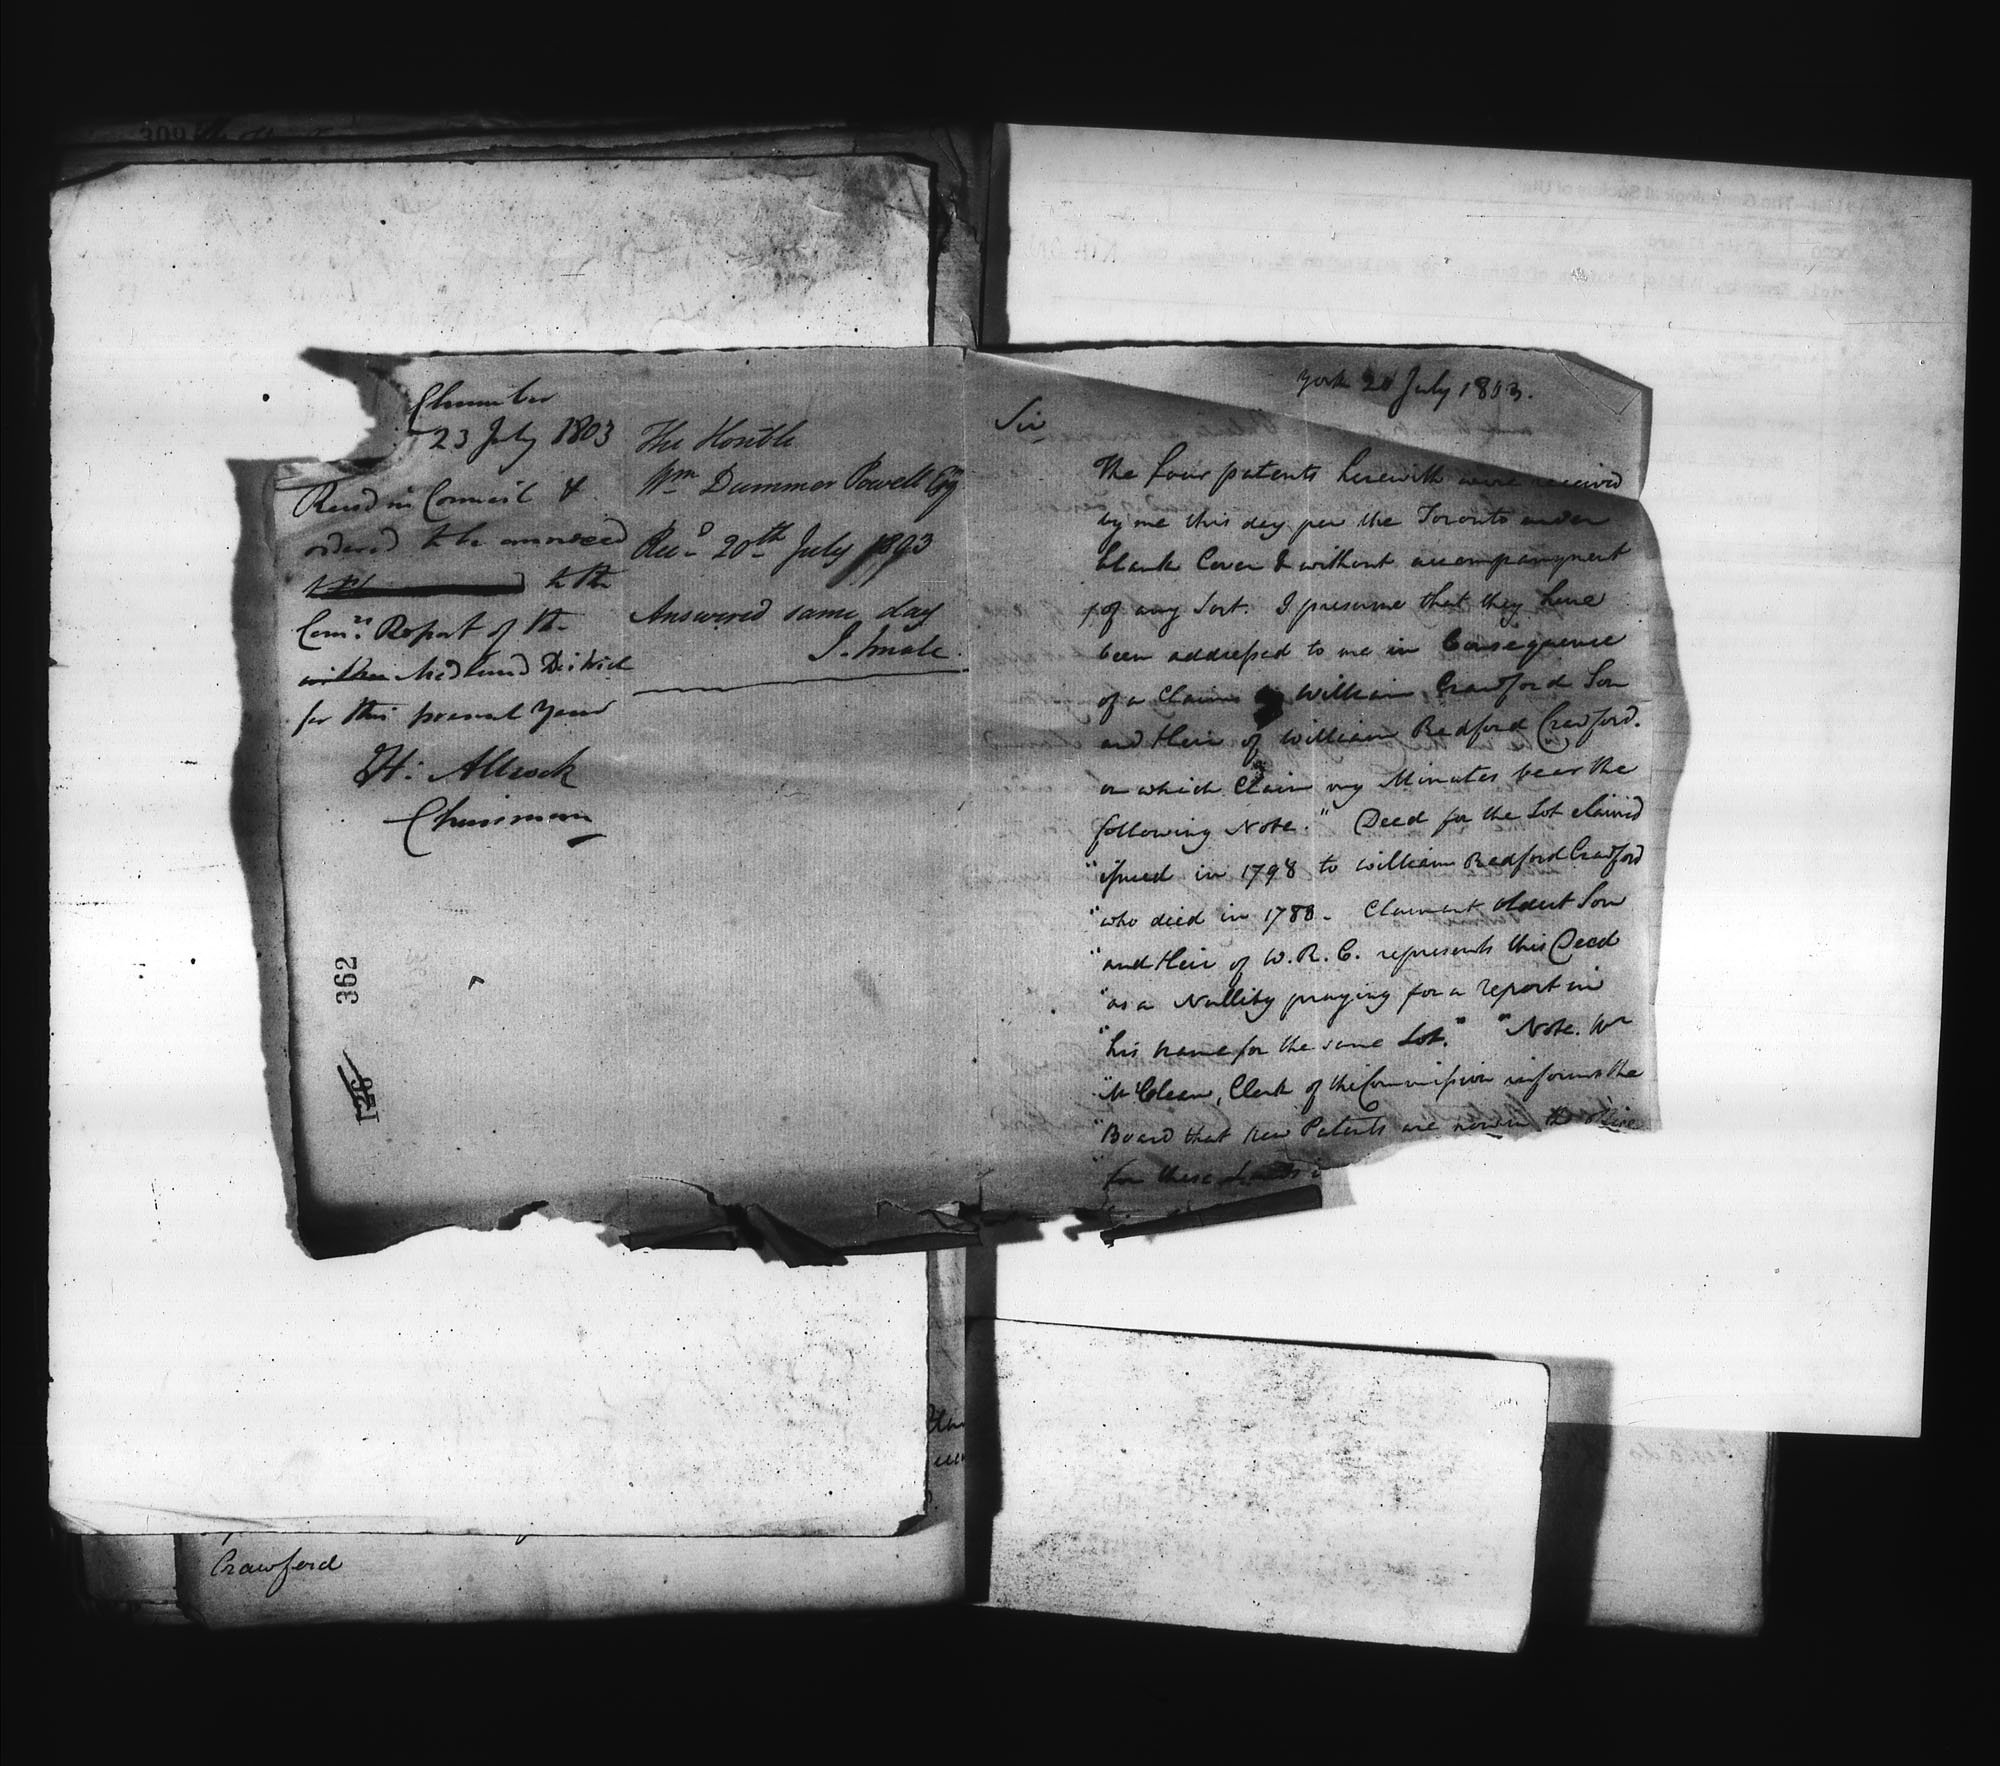 Chamber
23 July 1803
Read in Council &
ordered to be annexed
to the
Comrs Report of the
within Midland District
for this present year
H: Allcock
Chairman
362
The Honble
Wm Dummer Powell Esqr
Recd 20th July 1803
Answered same day
J. Small
York 20 July 1803.
Sir
The four patents herewith were received
by me this day per the Toronto under
blank Cover & without accompanyment
of any Sort. I presume that they have
been addressed to me in Consequence
of a Claim William Crawford Son
and Heir of William Redford Crawford.
on which Claim my Minutes bear the
following Note. " Deed for the Lot claimed
" issued in 1798 to William Redford Crawford
" who died in 1788. Claimant oldest Son
" and Heir of W. R. C. represents this Deed
" as a Nullity praying for a report in
" his name for the same Lot." "Note. Wr
" McClean, Clerk of the Commission informs the
" Board that new Patents are now in the office
" for these Lands
Crawford